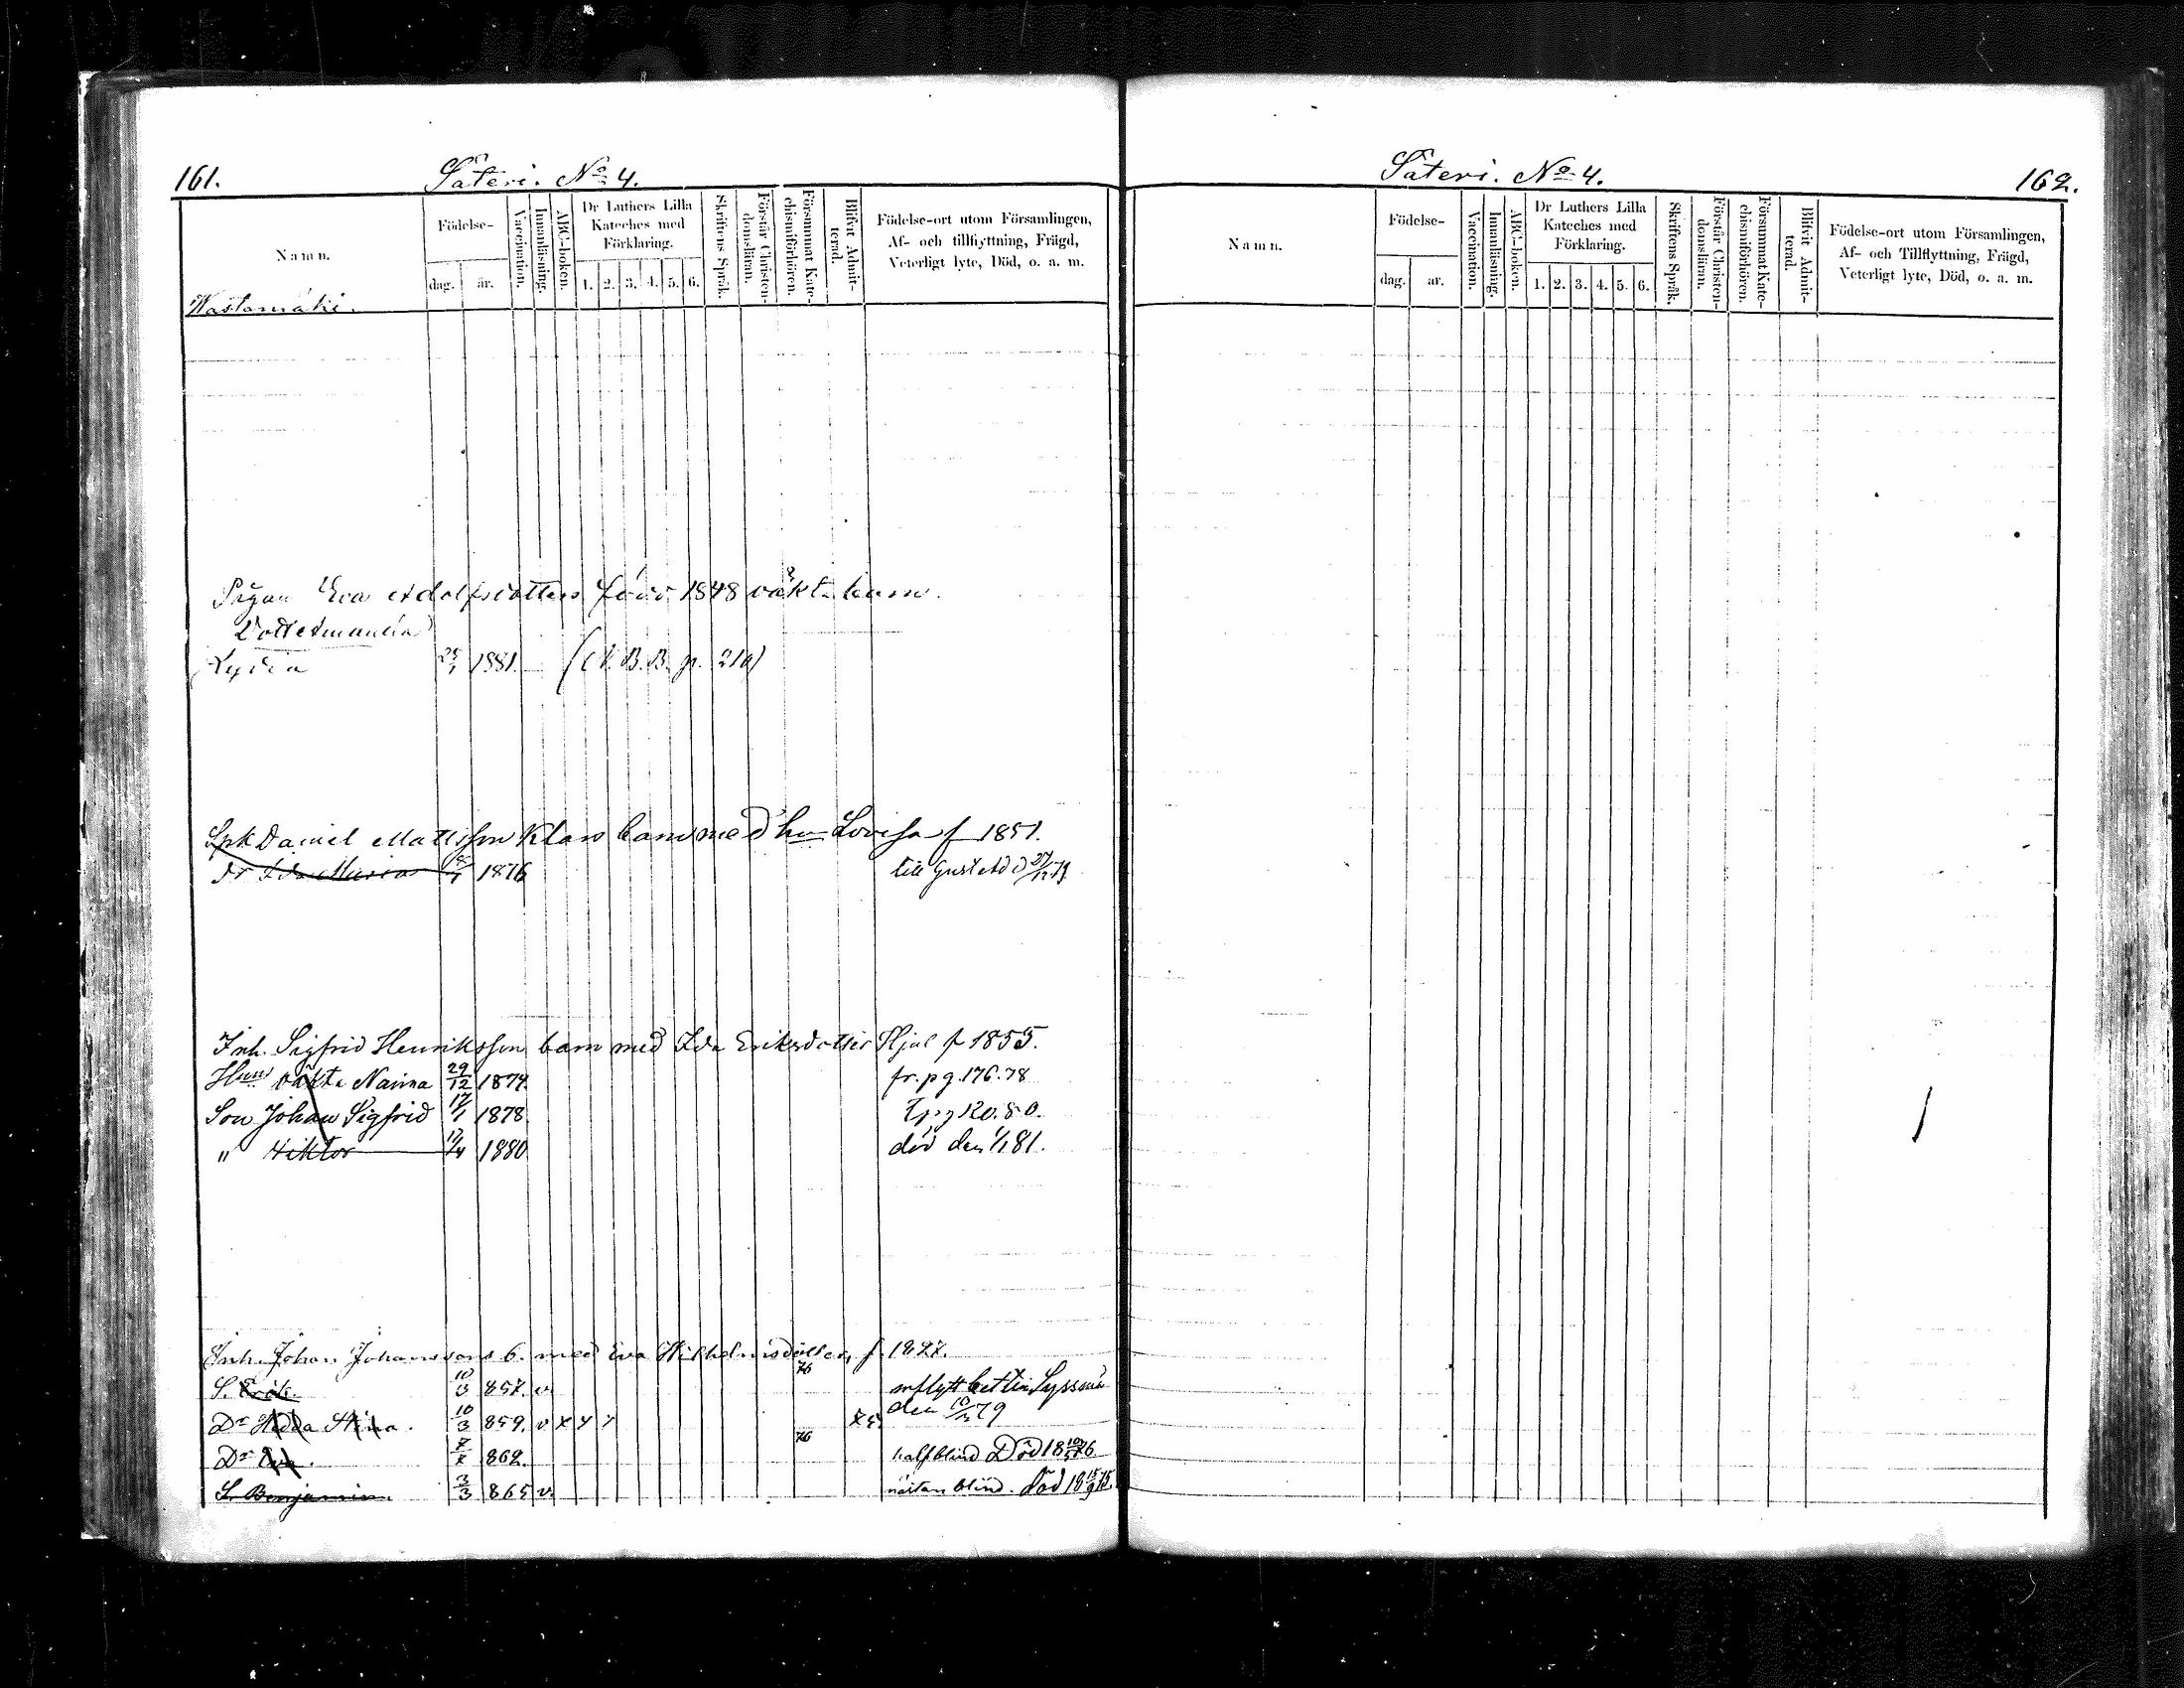 161. Säteri. No 4.
Namn.
Födelse-
dag. år.
Vaccination.
Innanläsning.
ABC-boken.
Dr Luthers Lilla Kateches med Förklaring.
1. 2. 3. 4. 5. 6.
Skriftens Språk.
Förstår Christendomsläran.
Försummat Katechismiförhören.
Blifvit Admitterad.
Födelse-ort utom Församlingen,
Af- och tillflyttning, Frägd,
Veterligt lyte, Död, o. a. m.
Wastamäki.
Pigan Eva Adolfsdotters född 1848 oäkt. barn.
Lydia 25/1 1881. (N. B. B. p. 210)
Spk Daniel Mattsson Klars barn med hu Lovisa f 1851.
dr Ida Maria 1876 till Gust Ad d 27/12 79
Inh. Sigfrid Henriksson barn med Ida Eriksdotter Hjul f 1855.
Huns oäkta Naima 29/12 1874 fr. pg. 176. 78
Son Johan Sigfrid 17/1 1878 T pg 120. 80.
" Viktor 17/4 1880 död den 1/1 81.
Inh. Johan Johanssons b. med Eva Wilhelmsdotter, f. 1827.
S. Erik. 10/3 857. v 76
D:r Hedda Stina. 10/3 859. v x y y
den 10/ 79
D:r Eva. 862. 76 halfblind Död 18 76
S. Benjamin. 3/3 865 v. nästan blind. Död 18 15/9 75.
Säteri. No 4. 162.
Namn.
Födelse-
dag. ar.
Vaccination.
Innanläsning.
ABC-boken.
Dr Luthers Lilla Kateches med Förklaring.
1. 2. 3. 4. 5. 6.
Skriftens Språk.
Förstår Christendomsläran.
Försummat Katechismiförhören.
Blifvit Admitterad.
Födelse-ort utom Församlingen,
Af- och Tillflyttning, Frägd,
Veterligt lyte, Död, o. a. m.